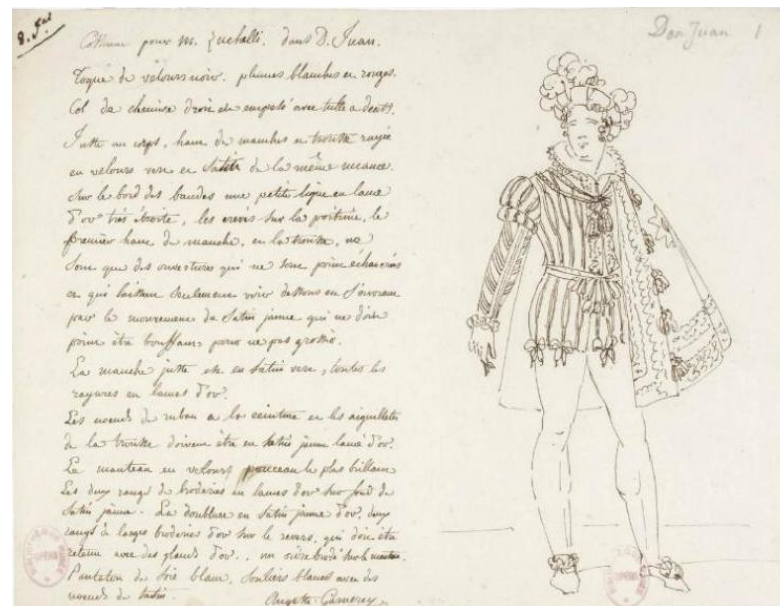 8. f.el
Don Juan 1
Costume pour M. Zuchelli, dans D. Juan.
Toque de velours noir. plumes blanches et rouges.
Col de chemise droit et empesé avec tulle a dents.
Juste au corps, haut de manches et trousse rayée
en velours vert et satin de la même nuance.
Sur le bord des bandes une petite ligne en lame
d'or très étroite, les crevés sur la poitrine, le
premier haut de manche, et la trousse, ne
sont que des ouvertures qui ne sont point échancrées
et qui laissent seulement voir dessous en s'ouvrant
par le mouvement du satin jaune qui ne doit
point être bouffant pour ne pas grossir.
La manche juste est en satin vert, toutes les
rayures en lames d'or.
Les noeuds de ruban a la ceinture et les aiguillettes
de la trousse doivent être en satin jaune lame d'or.
Le manteau en velours ponceau le plus brillant
Les deux rangs de broderies en lames d'or sur fond de
satin jaune. La doublure en satin jaune d'or, deux
rangs de larges broderies d'or sur le revers, qui doit être
retenu avec des glands d'or., un ordre brodé sur le manteau
Pantalon de soie blanc, souliers blancs avec des
noeuds de satin.
Auguste Garnerey